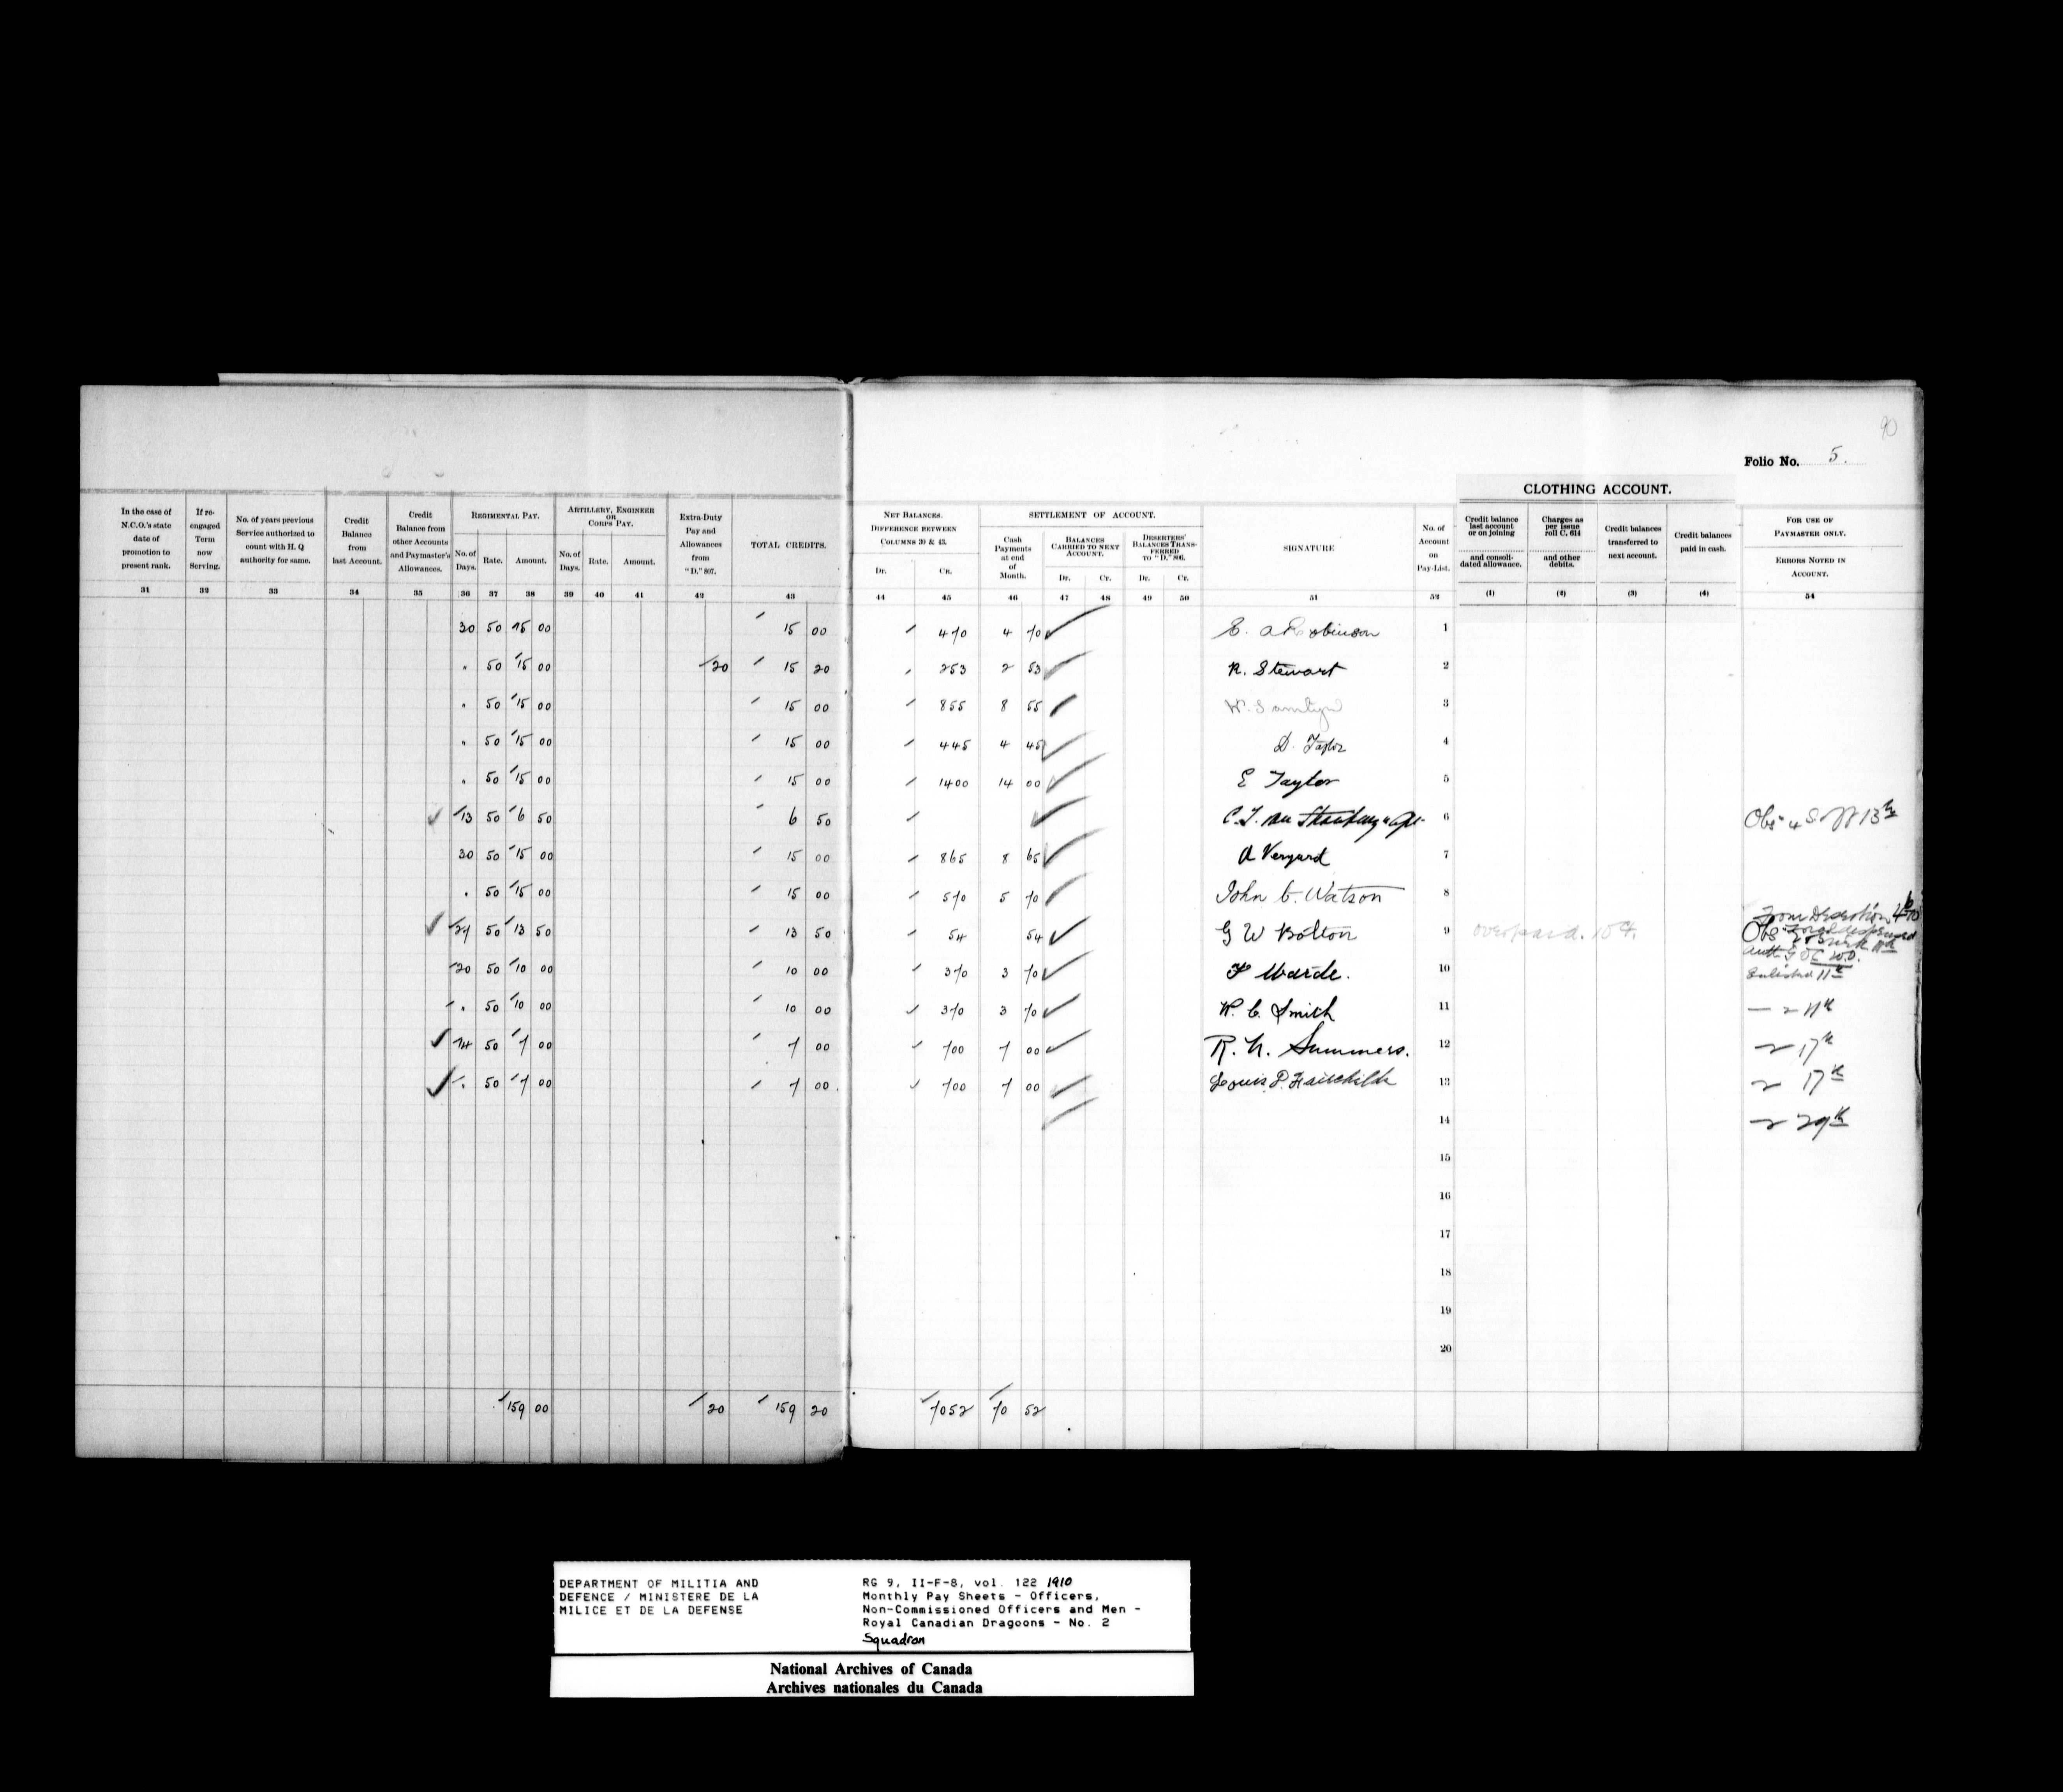 90
Folio No. 5.
CLOTHING ACCOUNT.
In the case of N.C.O.'s state date of promotion to present rank.
If re-engaged Term now Serving.
No. of years previous Service authorized to count with H. Q authority for same.
Credit Balance from last Account.
Credit Balance from other Accounts and Paymaster's Allowances.
REGIMENTAL PAY.
No. of Days. Rate. Amount.
ARTILLERY, ENGINEER OR CORPS PAY.
No. of Days. Rate. Amount.
Extra-Duty Pay and Allowances from "D." 807.
TOTAL CREDITS.
NET BALANCES.
DIFFERENCE BETWEEN COLUMNS 30 & 43.
Dr. Cr.
SETTLEMENT OF ACCOUNT.
Cash Payments at end of Month.
BALANCES CARRIED TO NEXT ACCOUNT.
Dr. Cr.
DESERTERS' BALANCES TRANSFERRED TO "D." 806.
Dr. Cr.
SIGNATURE
No. of Account on Pay-List.
Credit balance last account or on joining and consolidated allowance.
Charges as per issue roll C. 614 and other debits.
Credit balances transferred to next account.
Credit balances paid in cash.
FOR USE OF PAYMASTER ONLY.
ERRORS NOTED IN ACCOUNT.
31 32 33 34 35 36 37 38 39 40 41 42 43 44 45 46 47 48 49 50 51 52 (1) (2) (3) (4) 54
30 50 15 00 15 00 4 70 4 70 E. A Robinson 1
" 50 15 00 20 15 20 2 53 2 53 R. Stewart 2
" 50 15 00 15 00 8 55 8 55 W. S 3
" 50 15 00 15 00 4 45 4 45 D. Taylor 4
" 50 15 00 15 00 14 00 14 00 E Taylor 5
13 50 6 50 6 50 C. T. 6 13th
30 50 15 00 15 00 8 65 8 65 A Veryard 7
" 50 15 00 15 00 5 70 5 70 John C. Watson 8
From Desertion
27 50 13 50 13 50 54 54 G W Bolton 9 overpaid. Obs
20 50 10 00 10 00 3 70 3 70 F Warde. 10 Enlisted 11th
" 50 10 00 10 00 3 70 3 70 W. C. Smith 11 11th
14 50 7 00 7 00 7 00 7 00 R. N. Summers. 12 17th
" 50 7 00 7 00 7 00 7 00 Louis P. Fairchild 13 17th
14 29th
15
16
17
18
19
20
159 00 20 159 20 70 52 70 52
DEPARTMENT OF MILITIA AND
DEFENCE / MINISTERE DE LA
MILICE ET DE LA DEFENSE
RG 9, II-F-8, vol. 122 1910
Monthly Pay Sheets - Officers,
Non-Commissioned Officers and Men -
Royal Canadian Dragoons - No. 2
Squadron
National Archives of Canada
Archives nationales du Canada